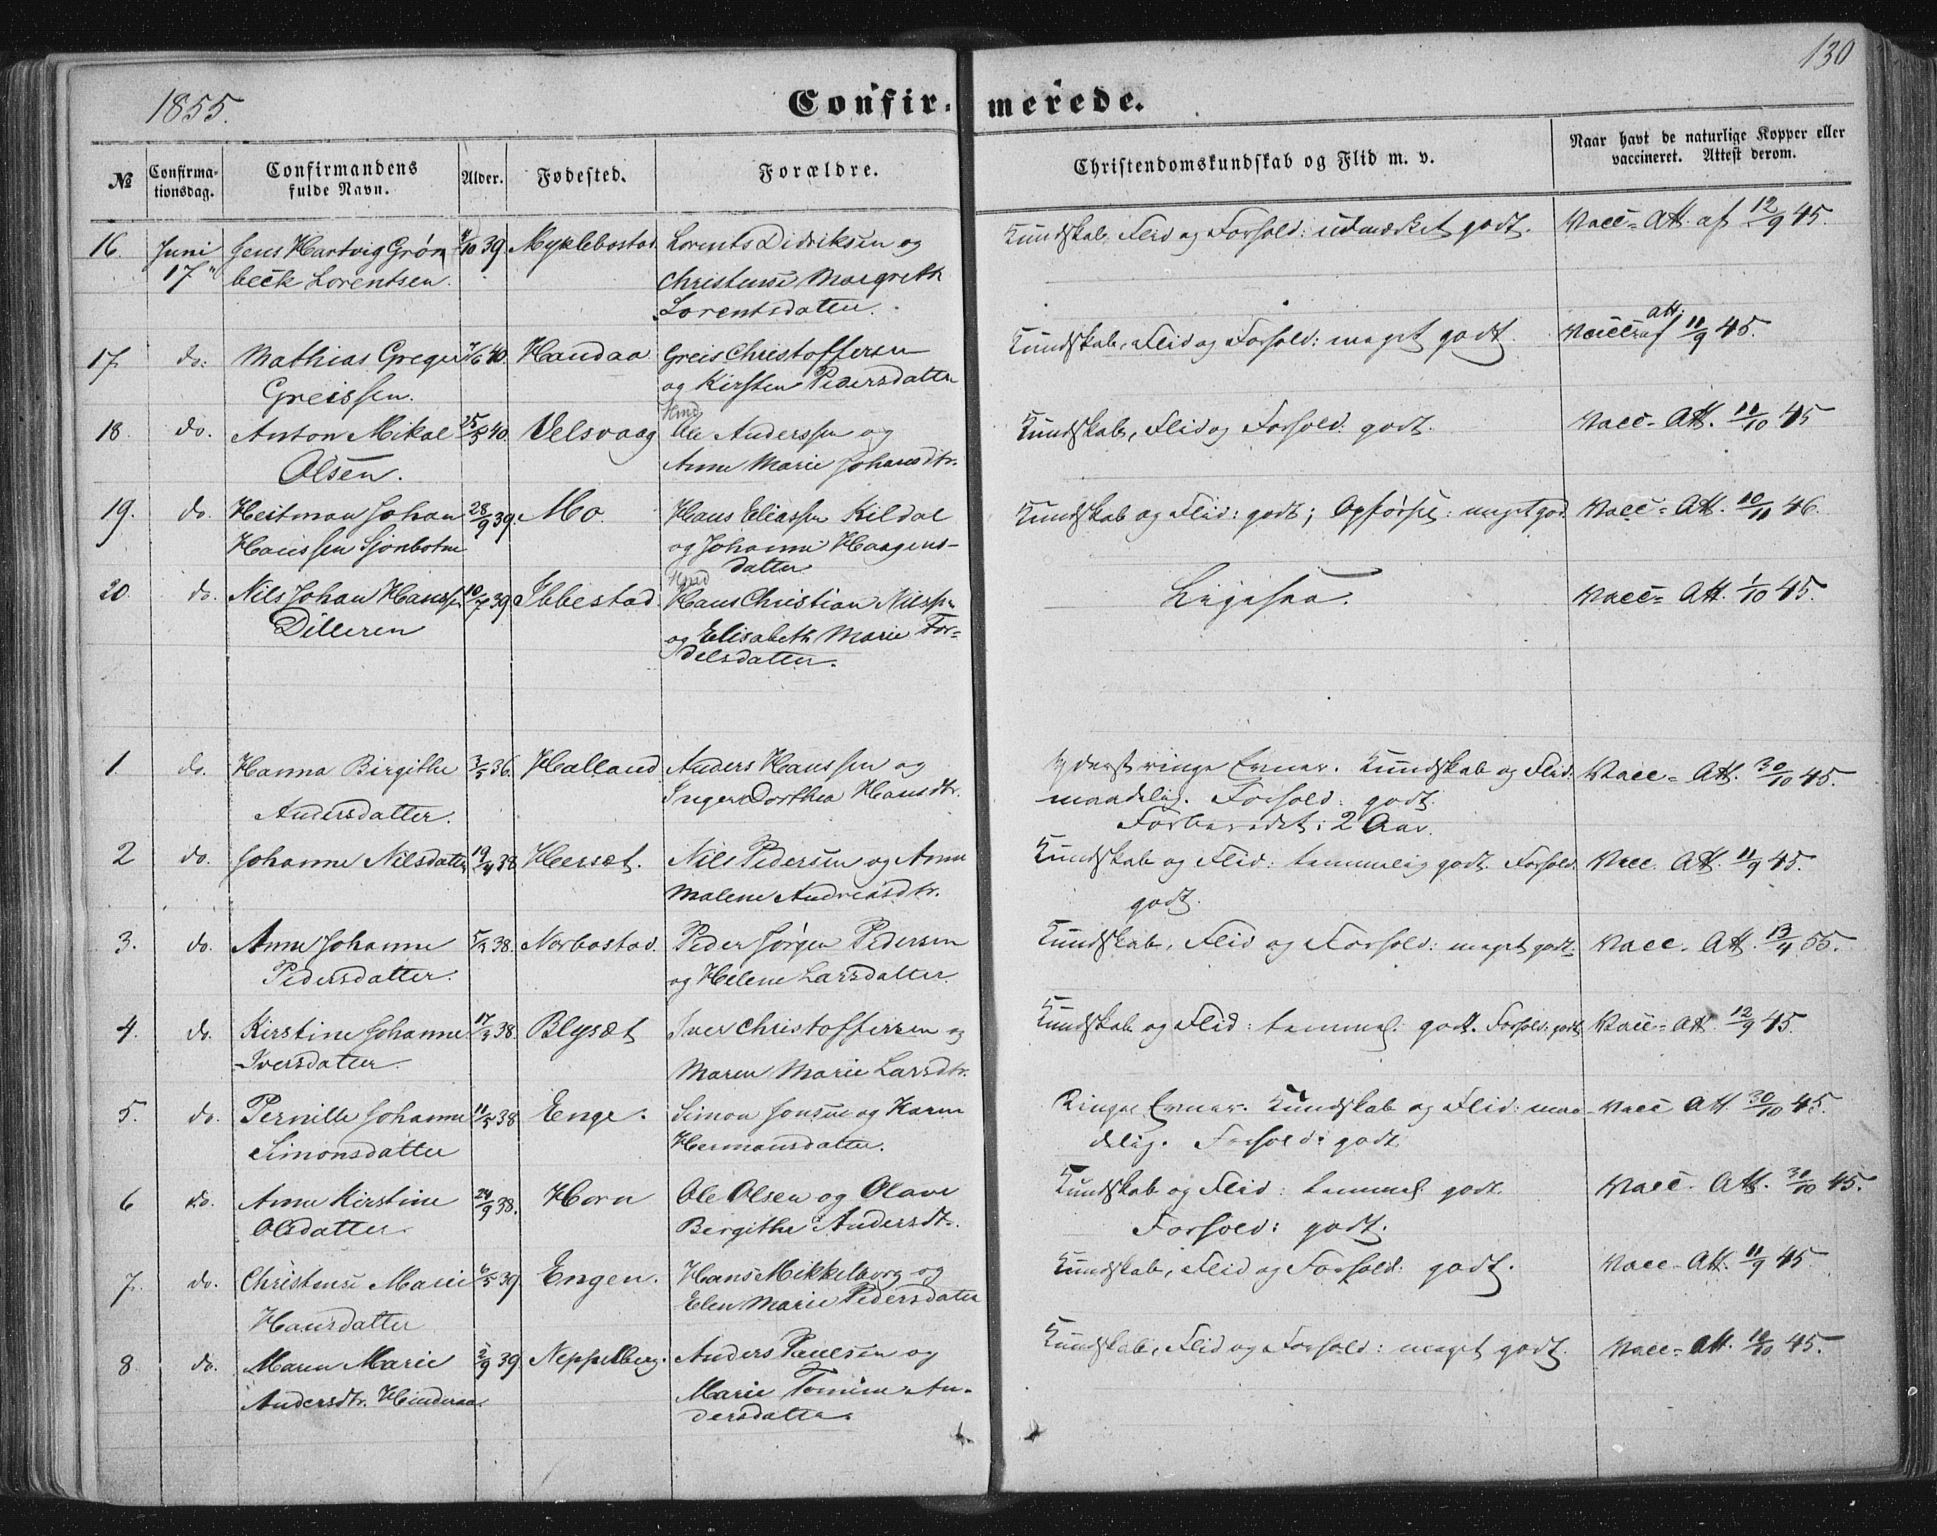 130
1855.
Confir- merede.
№
Confirma-
tionsdag.
Confirmandens
fulde Navn.
Alder.
Fødested.
Forældre.
Christendomskundskab og Flid m. v.
Naar havt de naturlige Kopper eller
vaccineret. Attest derom.
16. Juni Jens Hartvig Grøn 39. Myklebostad Lorents Didriksen og Kundskab, Flid og Forhold: udmærket godt. Vacc= Att. af 12/9 45.
17 beck Lorentsen. Christense Margreth
Lorentsdatter.
17. do. Mathias Greger 40. Handaa Greis Christoffersen Kundskab, Flid og Forhold: meget godt. Vacc att. af 11/9 45.
Greissen. og Kirsten Pedersdatter
18. do. Anton Mikal 25/5 40. Velsvaag Ole Anderssen og Kundskab, Flid og Forhold: godt. Vacc- Att. 11/10 45
Olsen. Anne Marie Johansdtr.
19. do. Heitman Johan 28/9 39. Mo. Hans Eliassen Kildal Kundskab og Flid: godt; Opførsel: meget god Vacc= Att. 10/11 46.
Hanssen Sjonbotn og Johanne Haagens-
datter
20. do. Nils Johan Hanssen 10/7 39. Ibbestad Hans Christian Nilssen Ligesaa. Vacc= Att. 1/10 45.
Dilleren og Elisabeth Marie Tor-
delsdatter.
1. do. Hanna Birgithe 3/5 36. Halland Anders Hanssen og Yderst ringe Evner. Kundskab og Flid: Vacc= Att. 30/10 45.
Andersdatter. Inger Dorthea Hansdtr. maadelig. Forhold: godt.
Forberedet i 2 Aar.
2 do. Johanne Nilsdatter 19/4 38. Hersæt. Nils Pedersen og Anne Kundskab og Flid: temmelig godt. Forhold: Vacc. Att. 11/9 45.
Malene Andreasdtr. godt.
3. do. Anne Johanne 38. Norbostad. Peder Jørgen Pedersen Kundskab, Flid og Forhold: meget godt. Vacc. Att. 13/4 55.
Pedersdatter. og Helene Larsdatter.
4. do. Kirstine Johanne 38. Blysæt Iver Christoffersen og Kundskab og Flid: temmel. godt. Forhold: godt Vacc= Att. 12/9 45.
Iversdatter. Maren Marie Larsdtr.
5. do. Pernille Johanne 11/5 38 Enge. Simon Jonsen og Karen Ringe Evner. Kundskab og Flid: maa- Vacc Att. 30/10 45.
Simonsdatter Hermansdatter. delig. Forhold: godt
6 do. Anne Kirstine 24/9 38. Horn Ole Olsen og Olave Kundskab og Flid: temmel. godt. Vacc. Att. 30/10 45.
Olsdatter Bergithe Andersdtr. Forhold: godt.
7. do. Christense Marie 6/5 39 Engen. Hans Mikkelborg og Kundskab, Flid og Forhold: godt. Vacc- Att. 11/9 45
Hansdatter Elen Marie Pedersdatter
8. do. Maren Marie 2/9 39 Neppelberg. Anders Paulsen og Kundskab, Flid og Forhold: meget godt. Vacc= Att. 45.
Andersdtr. Hinderaa Marie Tomine An-
dersdatter.